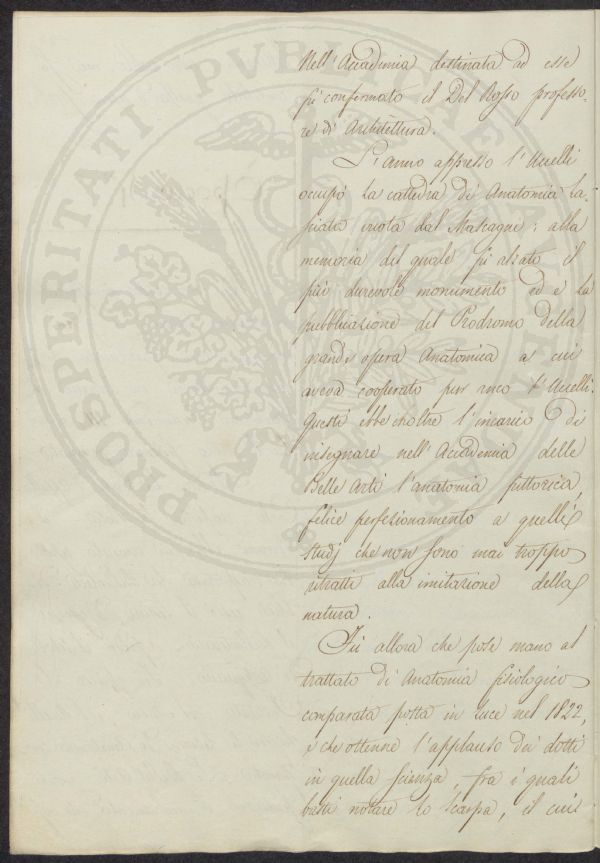 Nell'Accademia destinata ad esse
fù confermato il Del Rosso professo-
re di Architettura.
L'anno appresso l'Uccelli
occupò la cattedra di Anatomia la-
sciata vuota dal Mascagni; alla
memoria del quale fù alzato il
più durevole monumento ed è la
pubblicazione del Prodromo della
grande opera Anatomica a cui
aveva cooperato pur anco l'Uccelli.
Questi ebbe inoltre l'incarico di
insegnare nell'Accademia delle
Belle Arti l'anatomia pittorica,
felice perfezionamento a quelli
studj che non sono mai troppo
ritratti alla imitazione della
natura.
Fù allora che pose mano al
trattato di Anatomia fisiologico
comparata posta in luce nel 1822,
e che ottenne l'applauso dei dotti
in quella scienza, fra i quali
basti notare lo Scarpa, il cui
PROSPERITATI PVBLICAE AVGENDAE